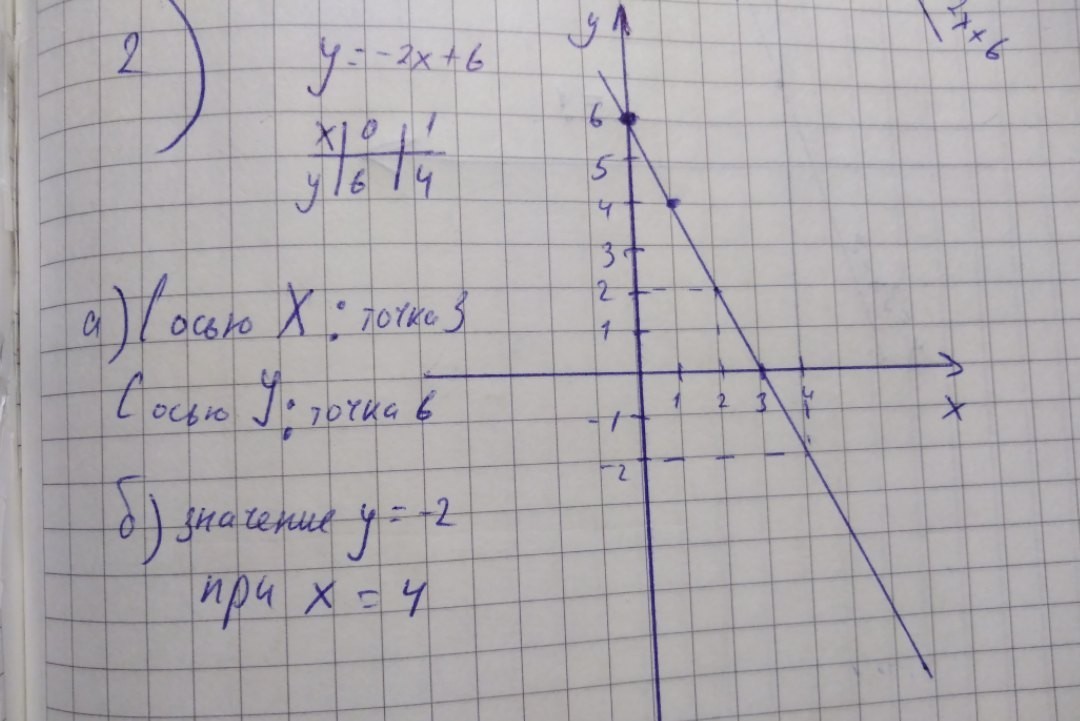 2)
y = -2x + 6
x | 0 | 1
y | 6 | 4
а) С осью X : точка 3
С осью У : точка 6
б) значение y = -2
при x = 4
y
6
5
4
3
2
1
-1
-2
1 2 3 4
x